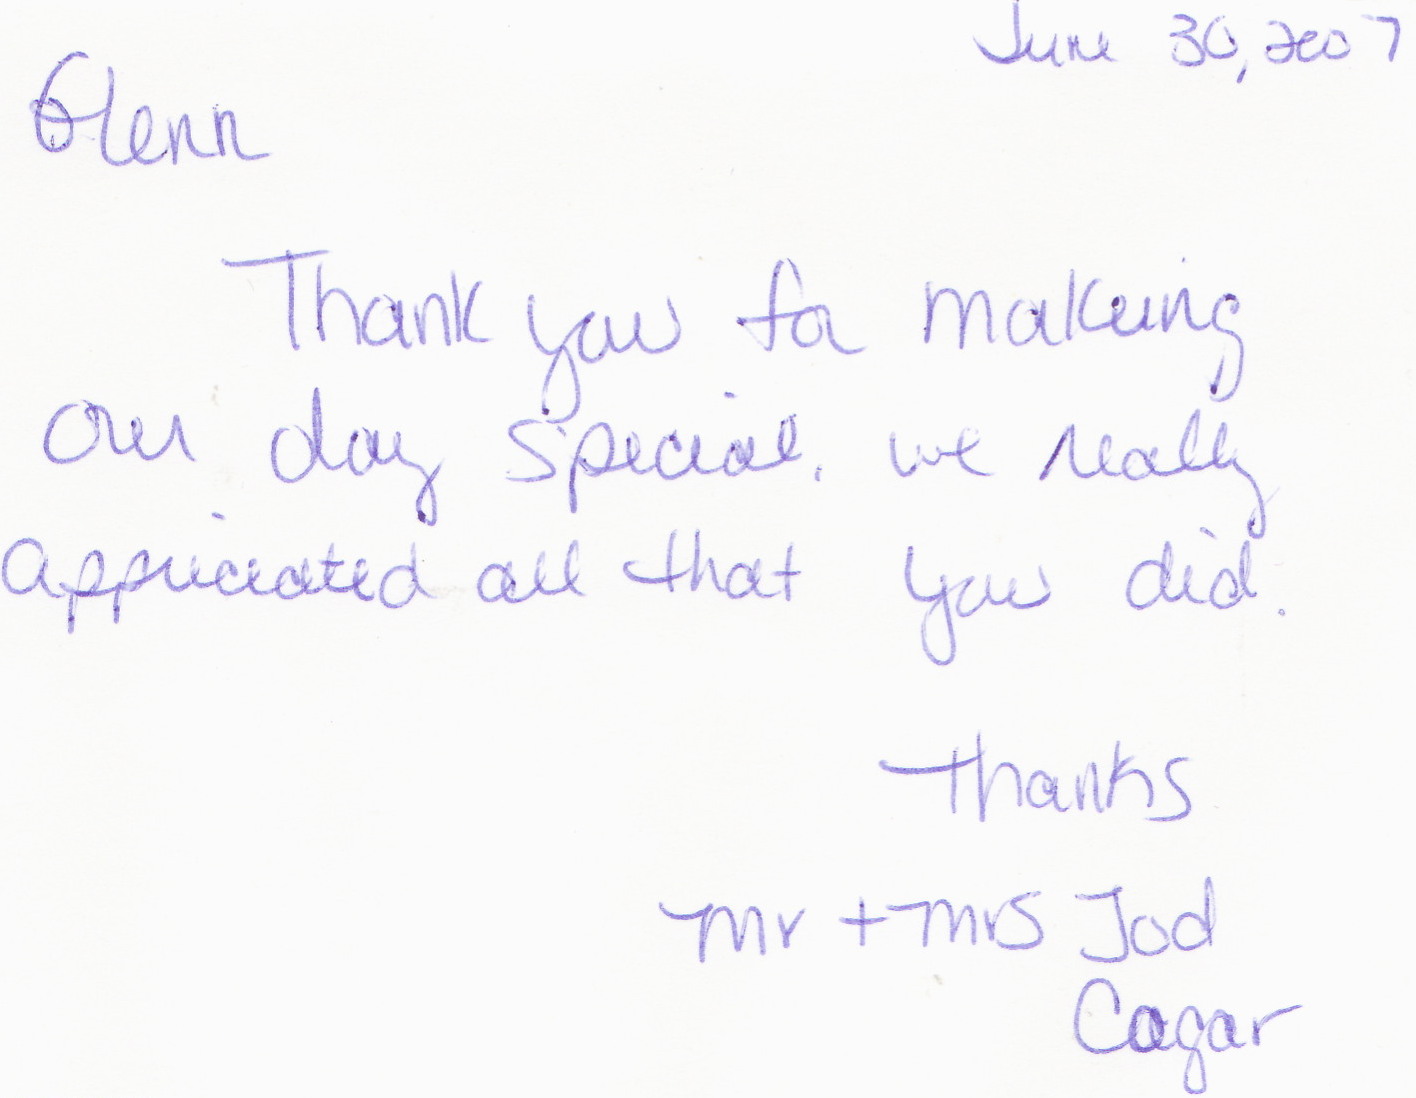 June 30, 2007
Glenn
Thank you for making
our day special. we really
appriciated all that you did.
Thanks
Mr + Mrs Tod
Cagar